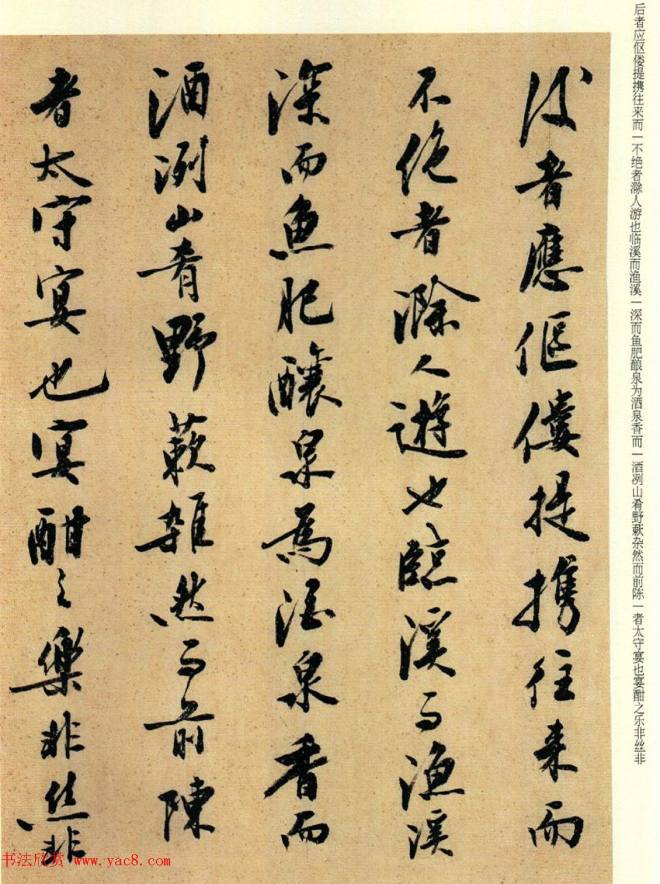 后者应伛偻提携往来而一不绝者滁人游也临溪而渔溪一深而鱼肥酿泉为酒泉香而一酒冽山肴野蔌杂然而前陈一者太守宴也宴酣之乐非丝非
後者應傴僂提攜往來而
不絕者滁人遊也臨溪而漁溪
深而魚肥釀泉為酒泉香而
酒洌山肴野蔌雜然而前陳
者太守宴也宴酣之樂非絲非
书法欣赏 www.yac8.com